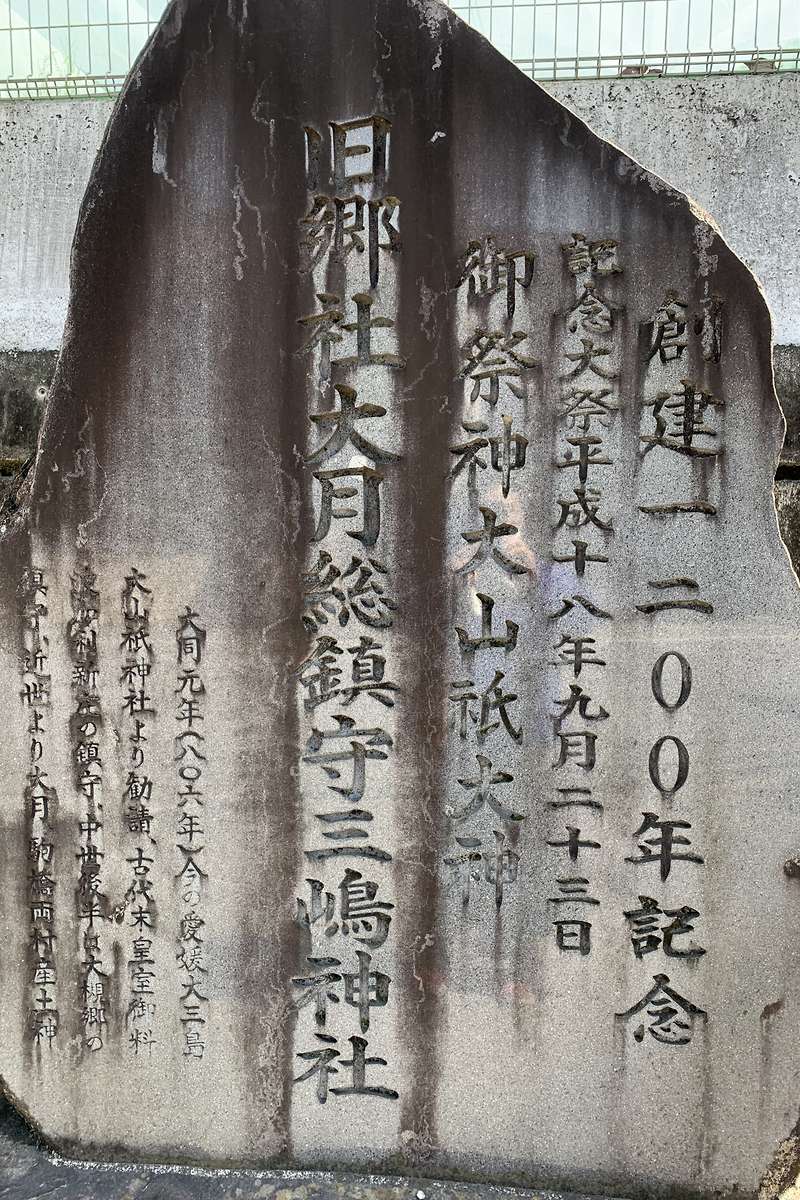 創建一二〇〇年記念
記念大祭平成十八年九月二十三日
御祭神大山祇大神
旧郷社大月総鎮守三嶋神社
大同元年(八〇六年)今の愛媛大三島
大山祇神社より勧請、古代末皇室御料
波加利新庄の鎮守、中世後半は大槻郷の
鎮守、近世より大月、駒橋両村産土神